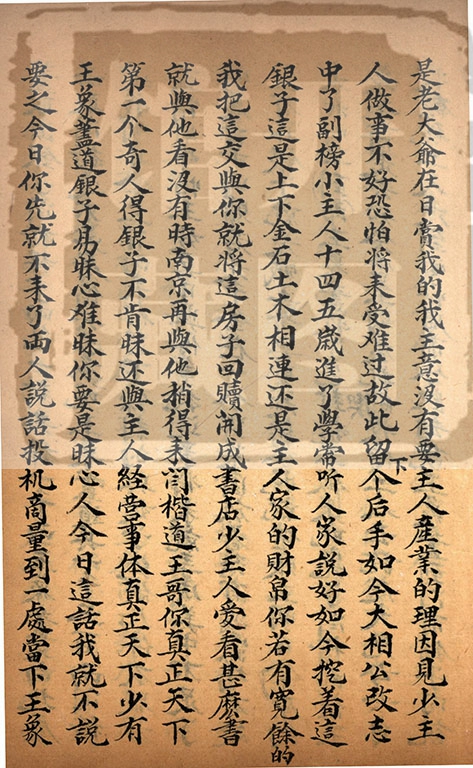 是老大爺在日賞我的我主意没有要主人産業的理因見少主
人做事不好恐怕将来受难过故此留下个后手如今大相公改志
中了副榜小主人十四五歲進了學常听人家説好如今挖着這
銀子這是上下金石土木相連还是主人家的財帛你若有寬餘的
我把這交與你就将這房子回贖開成書店少主人愛看甚麽書
就與他看没有時南京再與他稍得来闫楷道王哥你真正天下
第一个奇人得銀子不肯昧还與主人経营事体真正天下少有
王象藎道銀子易昧心难昧你要是昧心人今日這話我就不説
要之今日你先就不来了両人説話投机商量到一處當下王象